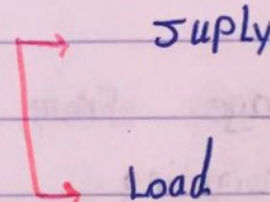 Suply
Load